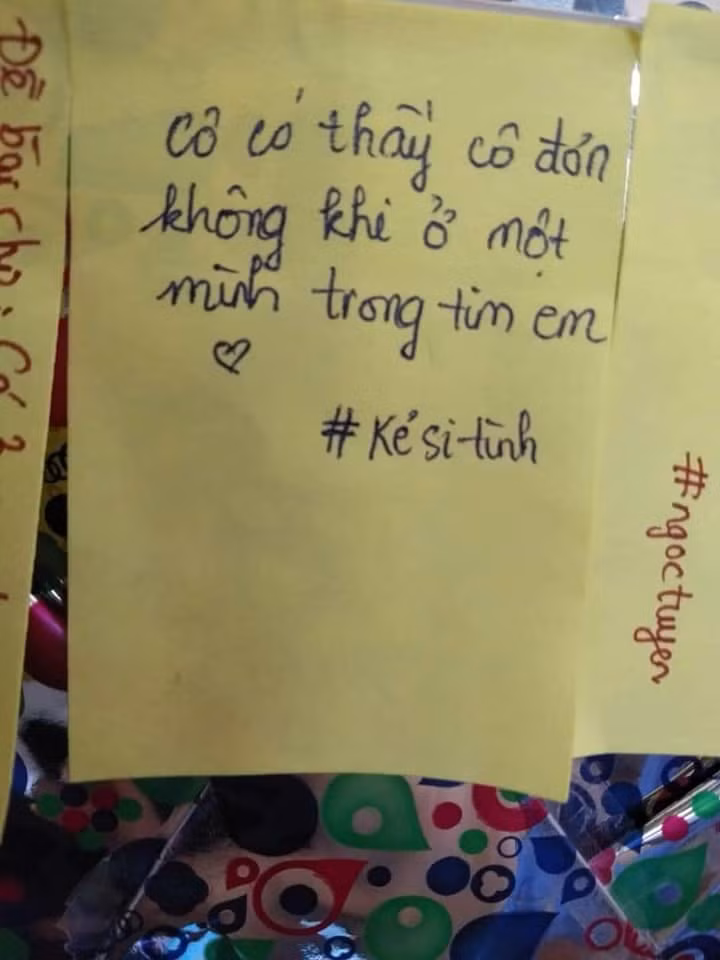 cô có thấy cô đơn
không khi ở một
mình trong tim em
♡
#kẻ si tình
#ngoctuyen
Đề bài cho: Có 3